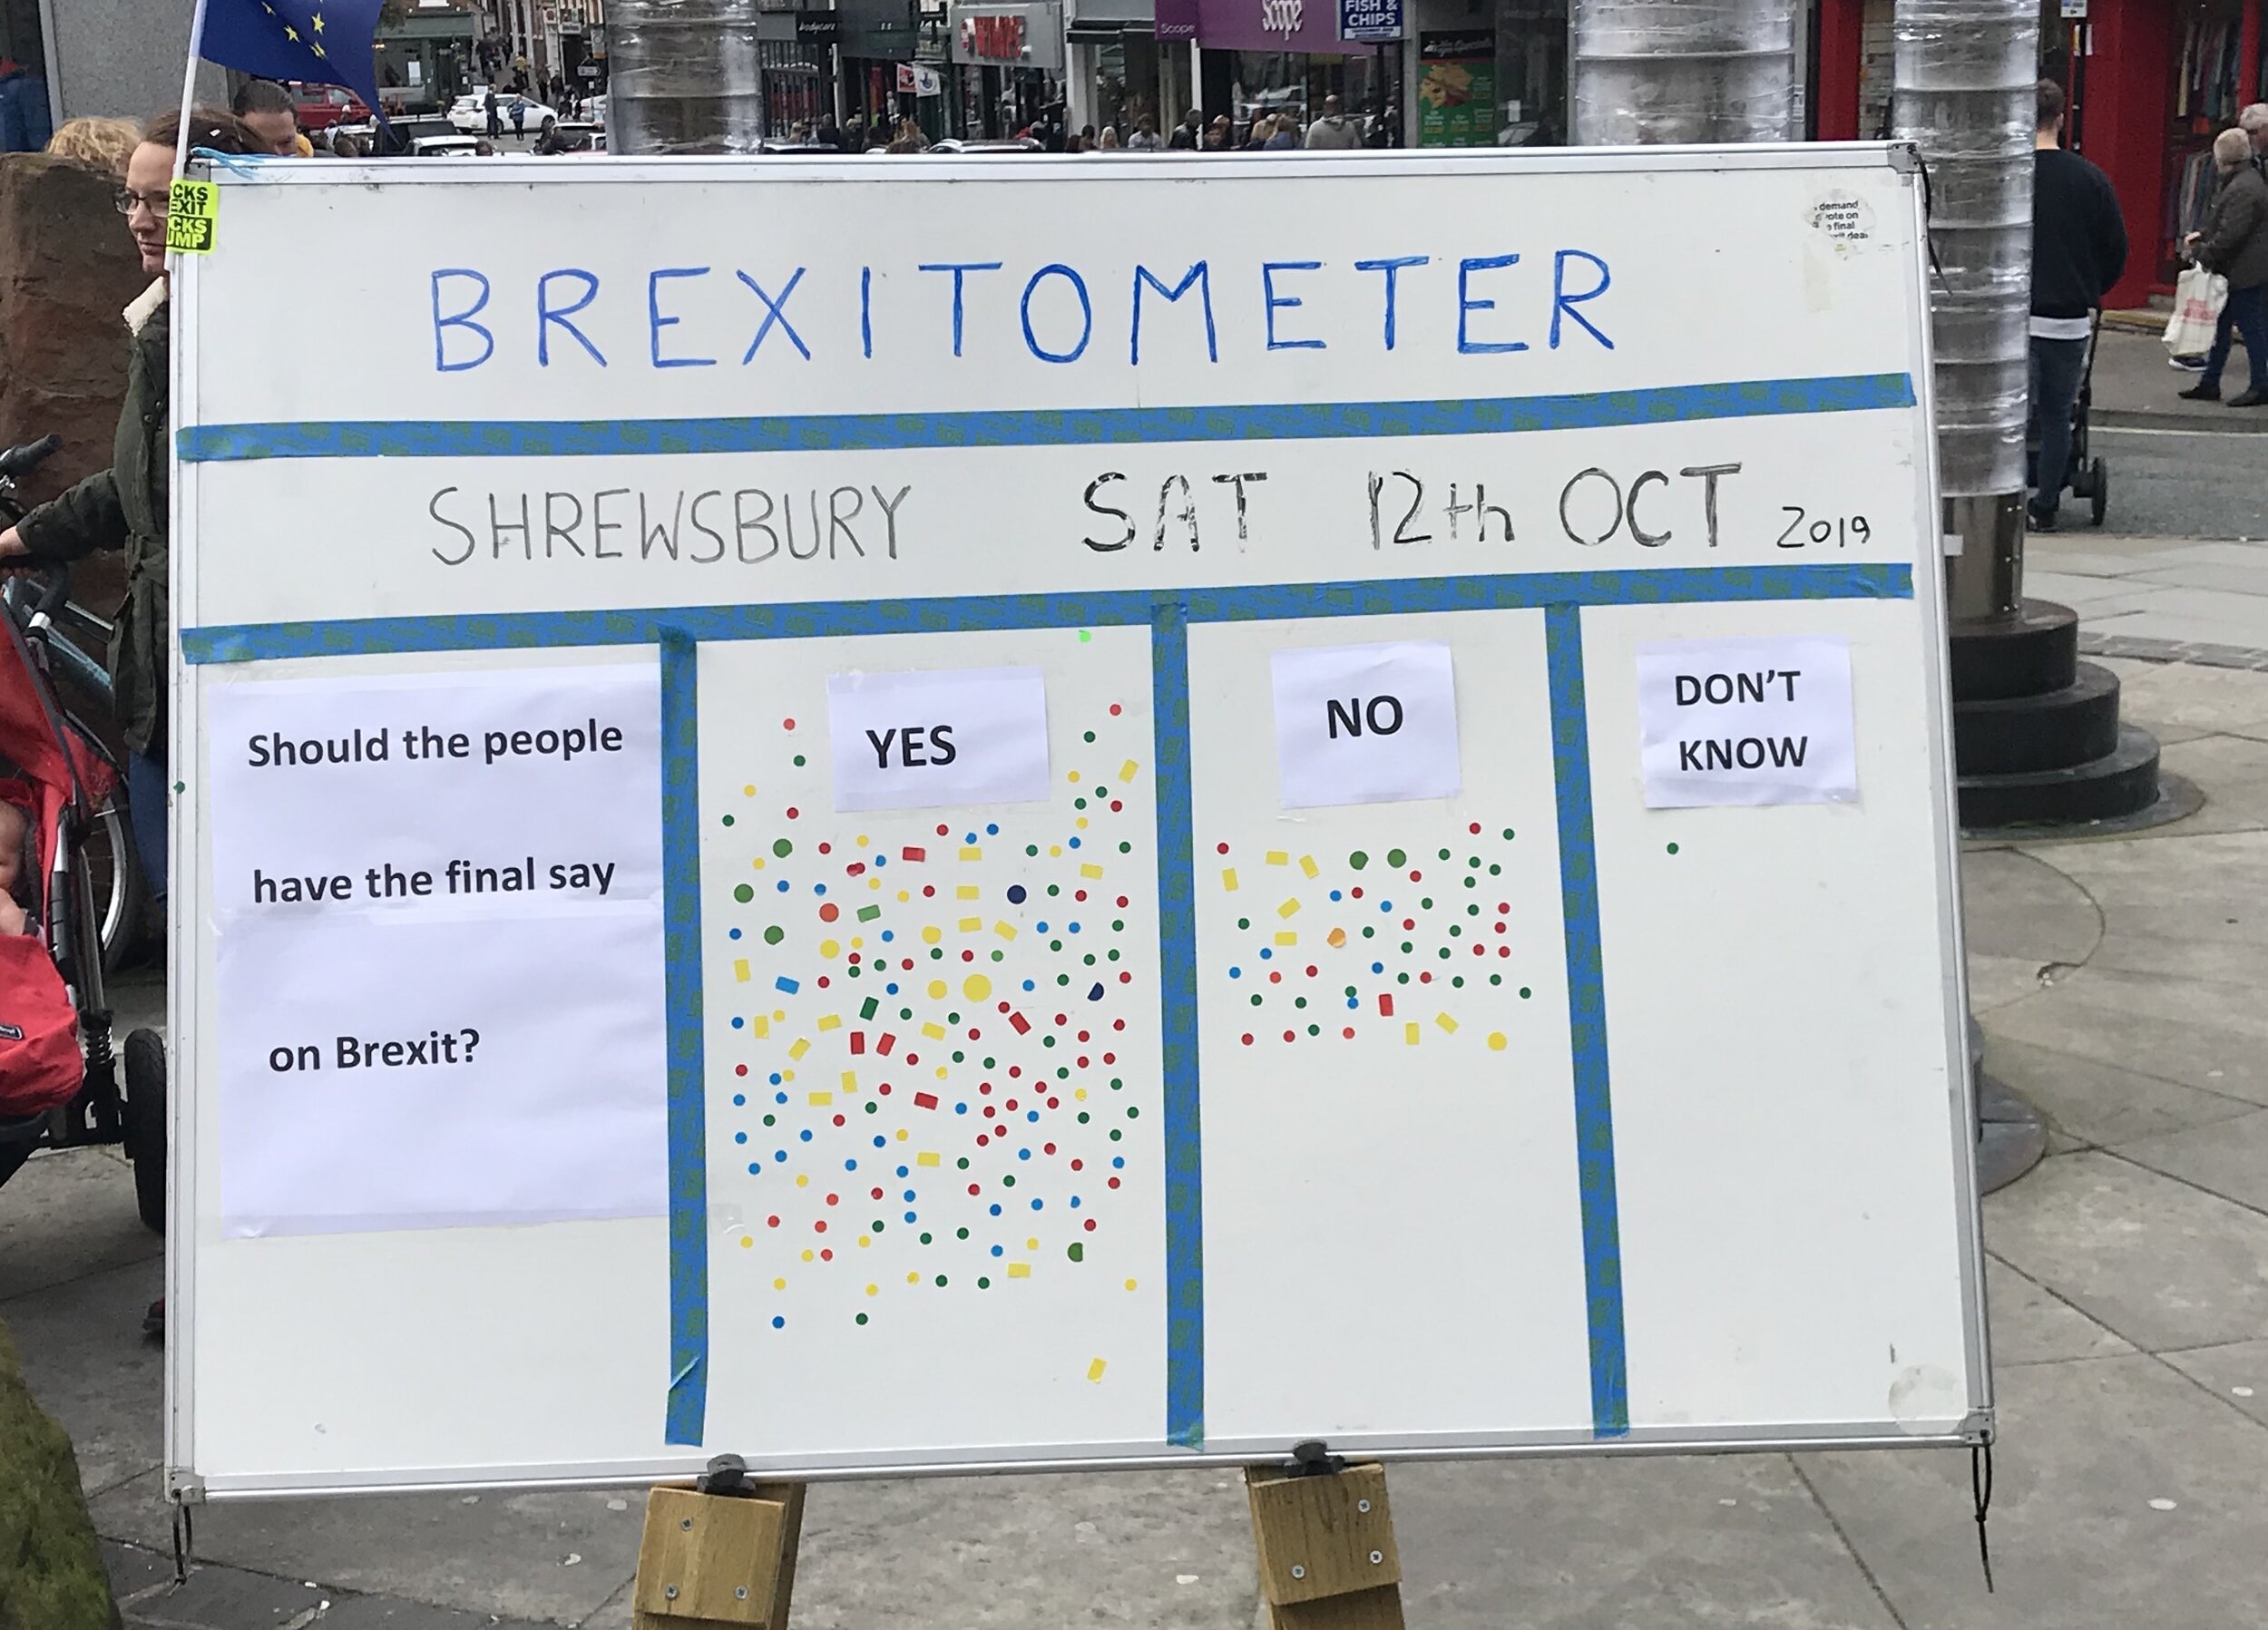 Scope
scope
FISH &
CHIPS
CKS
EXIT
CKS
UMP
demand
vote on
final
BREXITOMETER
SHREWSBURY SAT 12th OCT 2019
Should the people
have the final say
on Brexit?
YES
NO
DON'T
KNOW